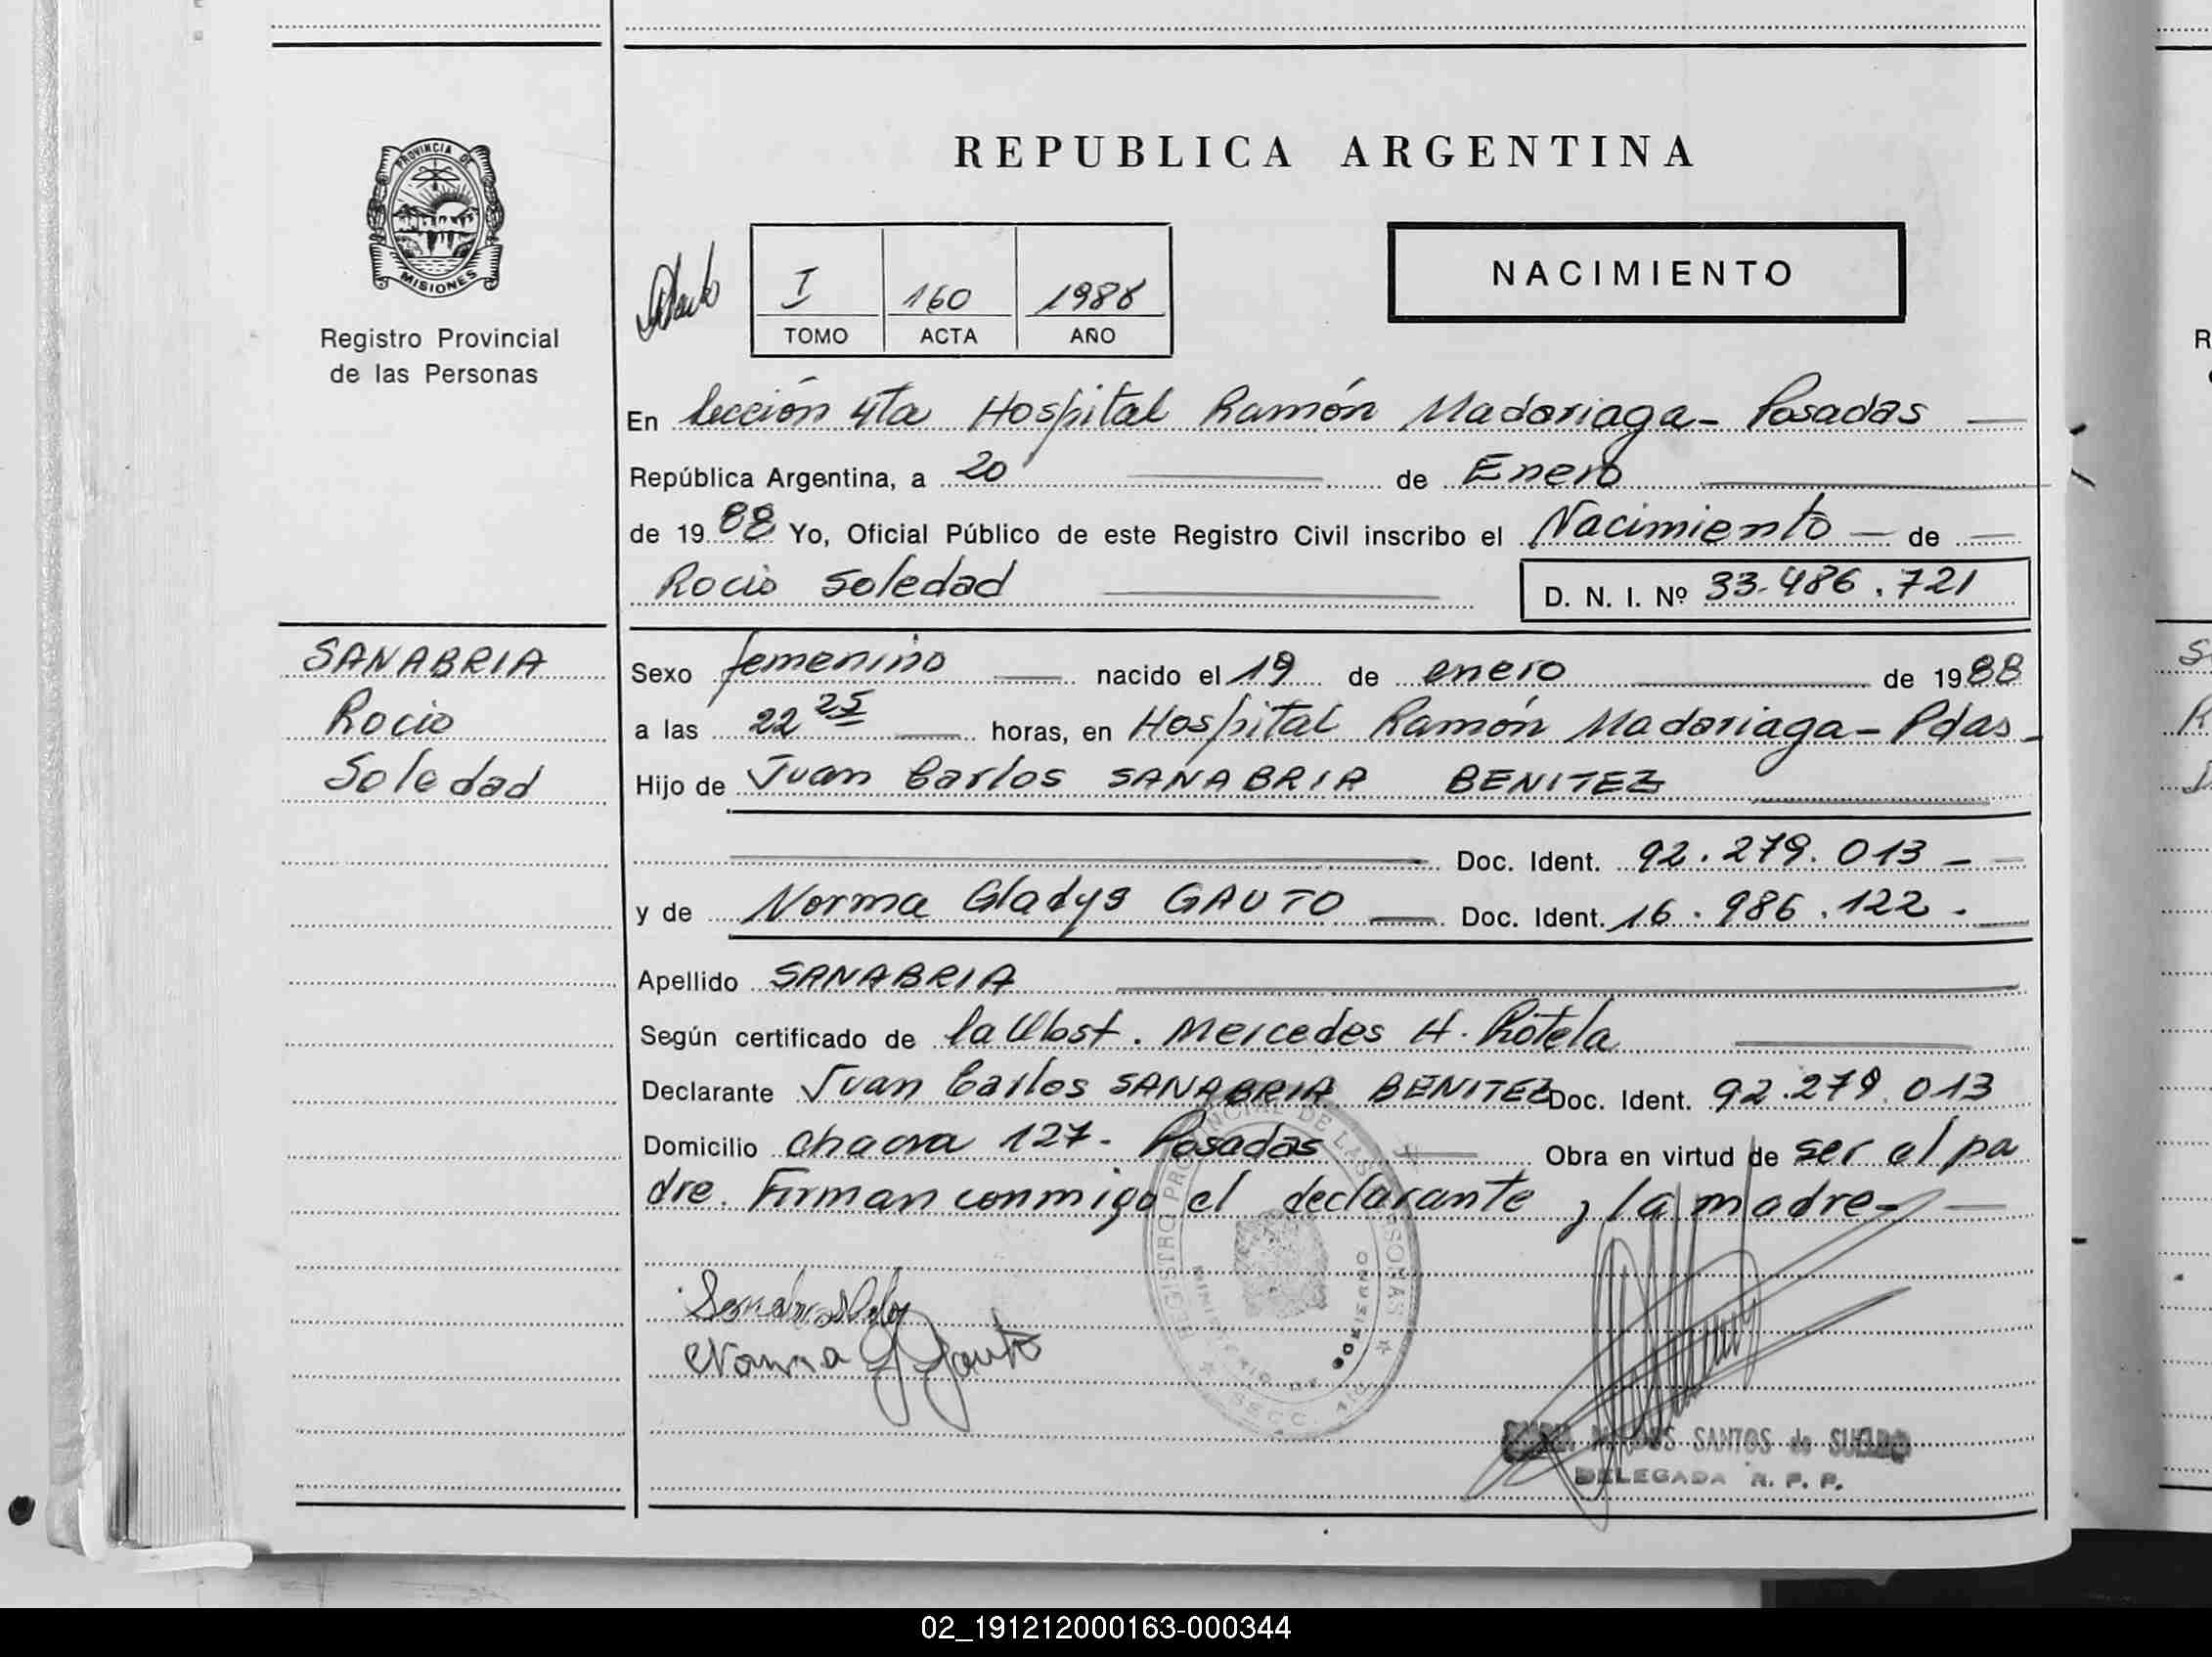 REPUBLICA ARGENTINA
PROVINCIA DE
MISIONES
Registro Provincial
de las Personas
NACIMIENTO
I 160 1988
TOMO ACTA AÑO
En Sección 4ta Hospital Ramón Madariaga - Posadas
República Argentina, a 20 de Enero
de 19 88 Yo, Oficial Público de este Registro Civil inscribo el Nacimiento de
Rocio Soledad D. N. I. Nº 33.486.721
SANABRIA
Rocio
Soledad
Sexo femenino nacido el 19 de enero de 19 88
a las 22 25 horas, en Hospital Ramón Madariaga - Pdas -
Hijo de Juan Carlos SANABRIA BENITEZ
Doc. Ident. 92.279.013 -
y de Norma Gladys GAUTO Doc. Ident. 16.986.122.
Apellido SANABRIA
Según certificado de la Obst. Mercedes H. Rotela
Declarante Juan Carlos SANABRIA BENITEZ Doc. Ident. 92.279.013
Domicilio chacra 127 - Posadas Obra en virtud de ser el pa
dre. Firman conmigo el declarante y la madre -
Norma G Gauto
REGISTRO PROVINCIAL DE LAS PERSONAS
MINISTERIO DE GOBIERNO
SECC. 4ta
SANTOS de SUELDO
DELEGADA R. P. P.
02_191212000163-000344